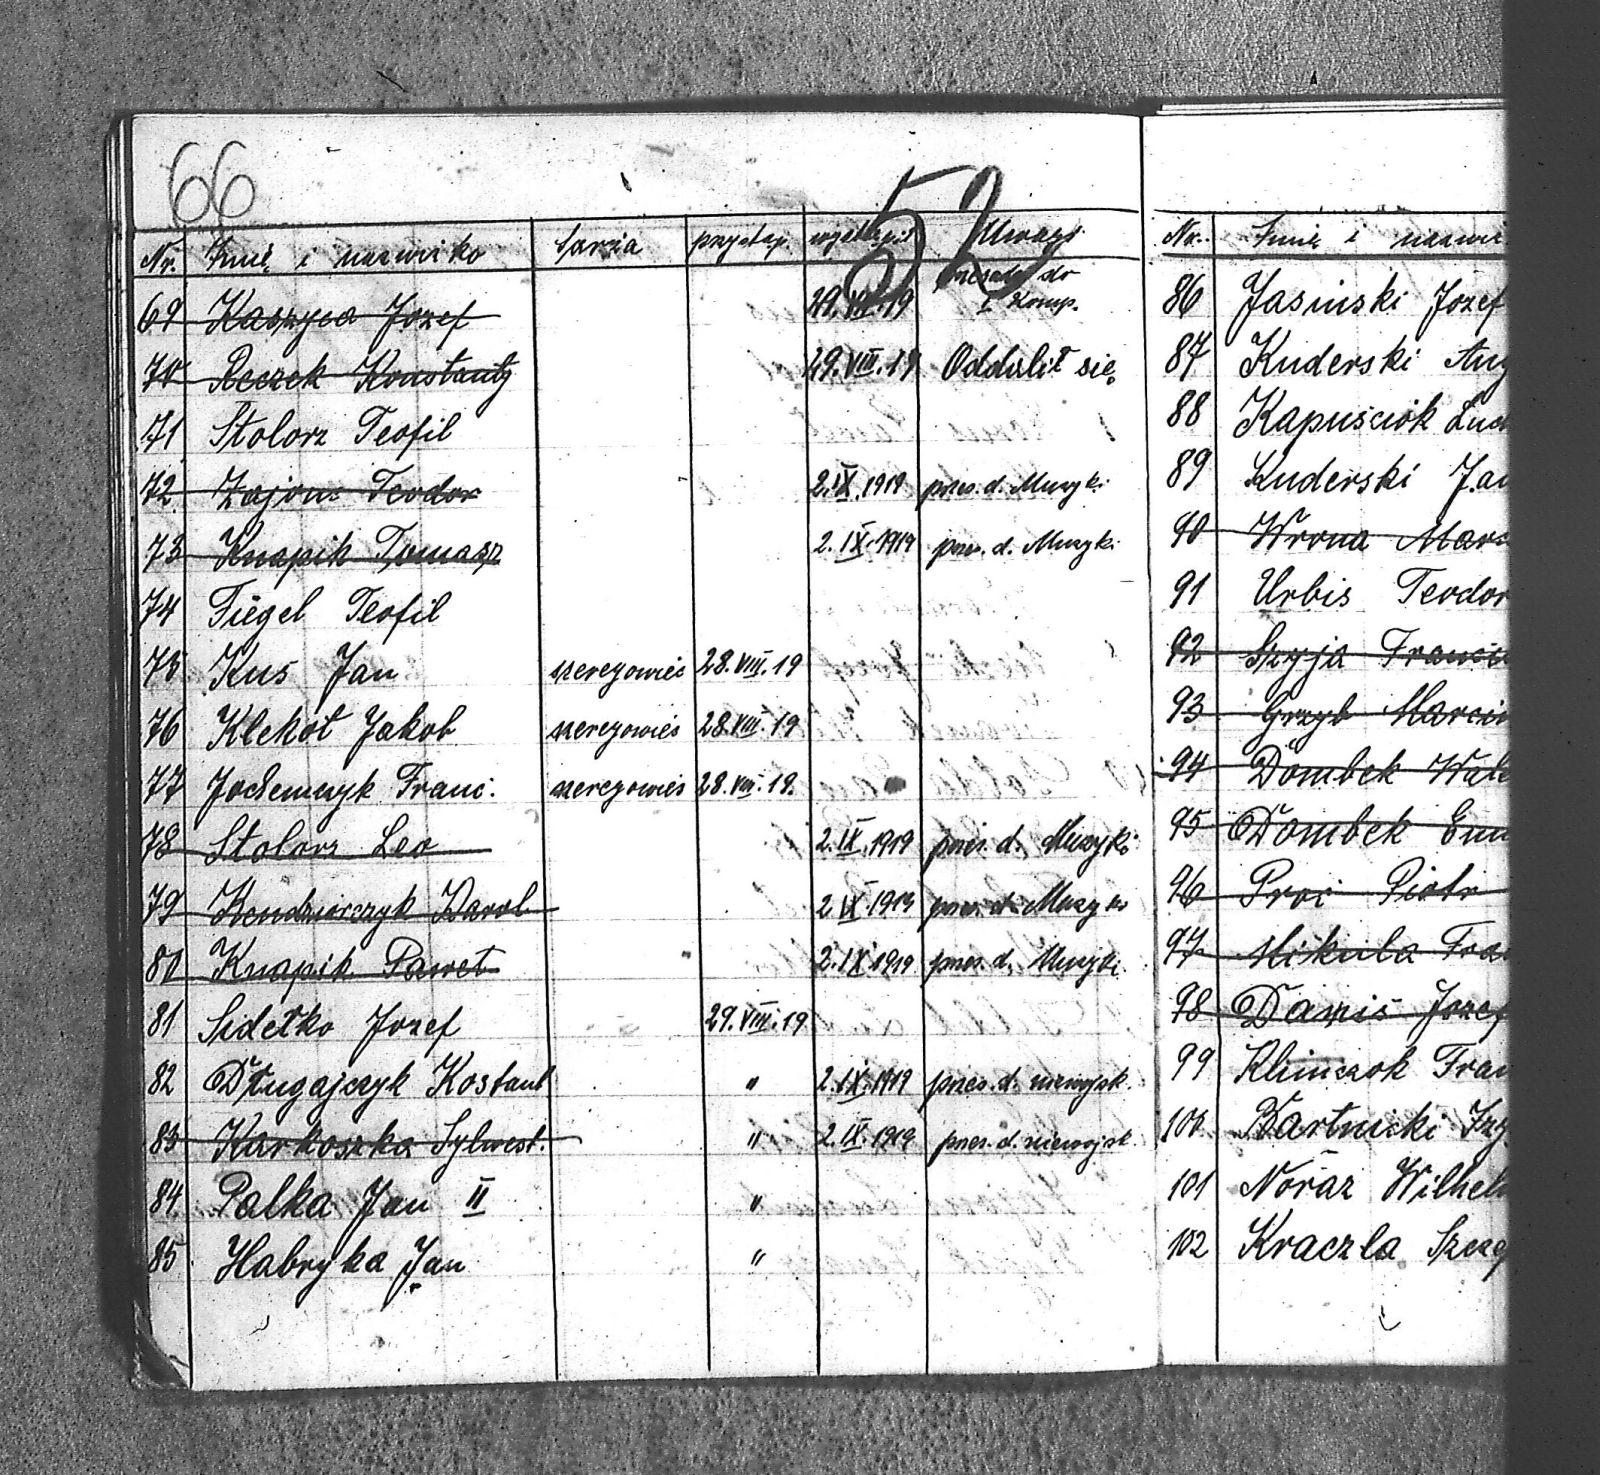 66
52
Nr. Imię i nazwisko szarża przystąp. wystąpił Uwagi
69 Kaszyca Jozef 29.VIII.19 do I Komp.
70 Reczek Konstanty 29.VIII.19 Oddalił się
71 Stolorz Teofil
72 Zajonc Teodor 2.IX.1919 przes. d. Muzyki
73 Knapik Tomasz 2.IX.1919 przes. d. Muzyki
74 Fiegel Teofil
75 Kus Jan szeregowieć 28.VIII.19
76 Klekot Jakob szeregowieć 28.VIII.19
77 Jochemczyk Franc. szeregowieć 28.VIII.19.
78 Stolorz Leo 2.IX.1919 przes. d. Muzyki
79 Kendziorczyk Karol 2 IX 1919 przes. d. Muzyki
80 Knapik Paweł 2.IX 1919 przes. d. Muzyki
81 Sidełko Jozef 29.VIII.19
82 Długajczyk Kostant " 2.IX.1919 przes. d. niewojsk.
83 Karkoszka Sylwest. " 2.IX.1919 przes. d. niewojsk
84 Palka Jan II "
85 Habryka Jan "
Nr. Imię i nazwi
86 Jasinski Jozef
87 Kuderski Aug
88 Kapuściok
89 Kuderski Jan
90 Wrona Marc
91 Urbis Teodor
92 Szyja Franci
93 Grzyb Marcin
94 Dombek Wale
95 Dombek
96 Proi Piotr
97 Mikula Fra
98 Jozef
99 Klimczok Fran
100 Bartnicki
101 Noraz Wilhel
102 Kraczla